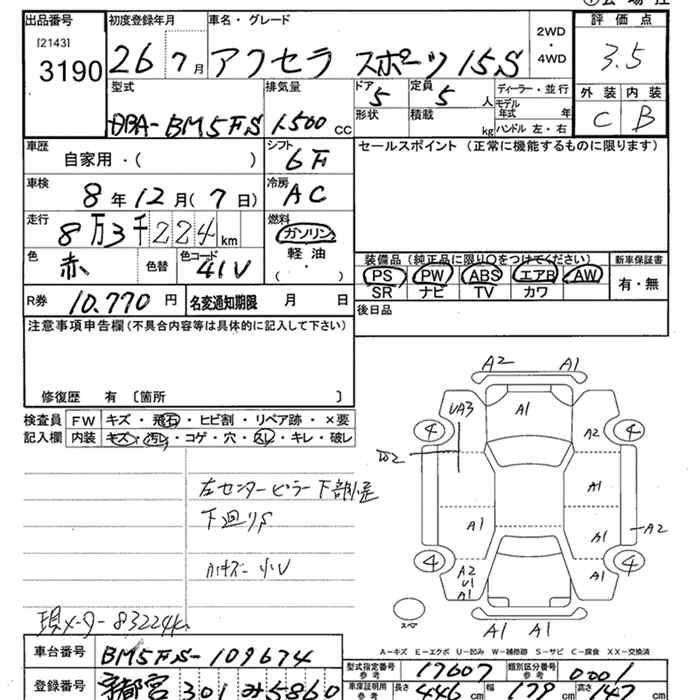 出品番号 初度登録年月 車名・グレード 2WD ・ 4WD 評価点
[2143]
3190 26 7月 アクセラ スポーツ 15S 3.5
型式 排気量 ドア 定員 ディーラー・並行 外装 内装
DBA-BM5FS 1500 cc 5 5 人 モデル年式 年 C B
形状 積載 kg ハンドル 左・右
車歴 シフト セールスポイント (正常に機能するものに限ります)
自家用・( ) 6F
車検 冷房
8年12月(7日) AC
走行 燃料
8万3千224km ガソリン
軽油
( ・ )
色 色替 色コード 装備品(純正品に限り○をつけてください) 新車保証書
赤 41V PS PW ABS エアB AW 有・無
SR ナビ TV カワ
R券 10,770円 名変通知期限 月 日 後日品
注意事項申告欄(不具合内容等は具体的に記入して下さい)
修復歴 有 〔箇所 〕
検査員 FW キズ・飛石・ヒビ割・リペア跡・×要
記入欄 内装 キズ・汚レ・コゲ・穴・スレ・キレ・破レ
左センターピラー下部
下廻りS
小U
現メーター83224k
A2 A1
UA3 A1
4 A2 4
A1
A1 A1 A2
4 A2 U1 A1 A1 4
A2 A1
A-キズ E-エクボ U-凹み W-補修跡 S-サビ C-腐食 XX-交換済
車台番号 BM5FS-109674
型式指定番号 参考 17607 類別区分番号 参考 0001
登録番号 宇都宮 301 み5860
車庫証明用 参考 長さ 446 cm 幅 179 cm 高さ 147 cm